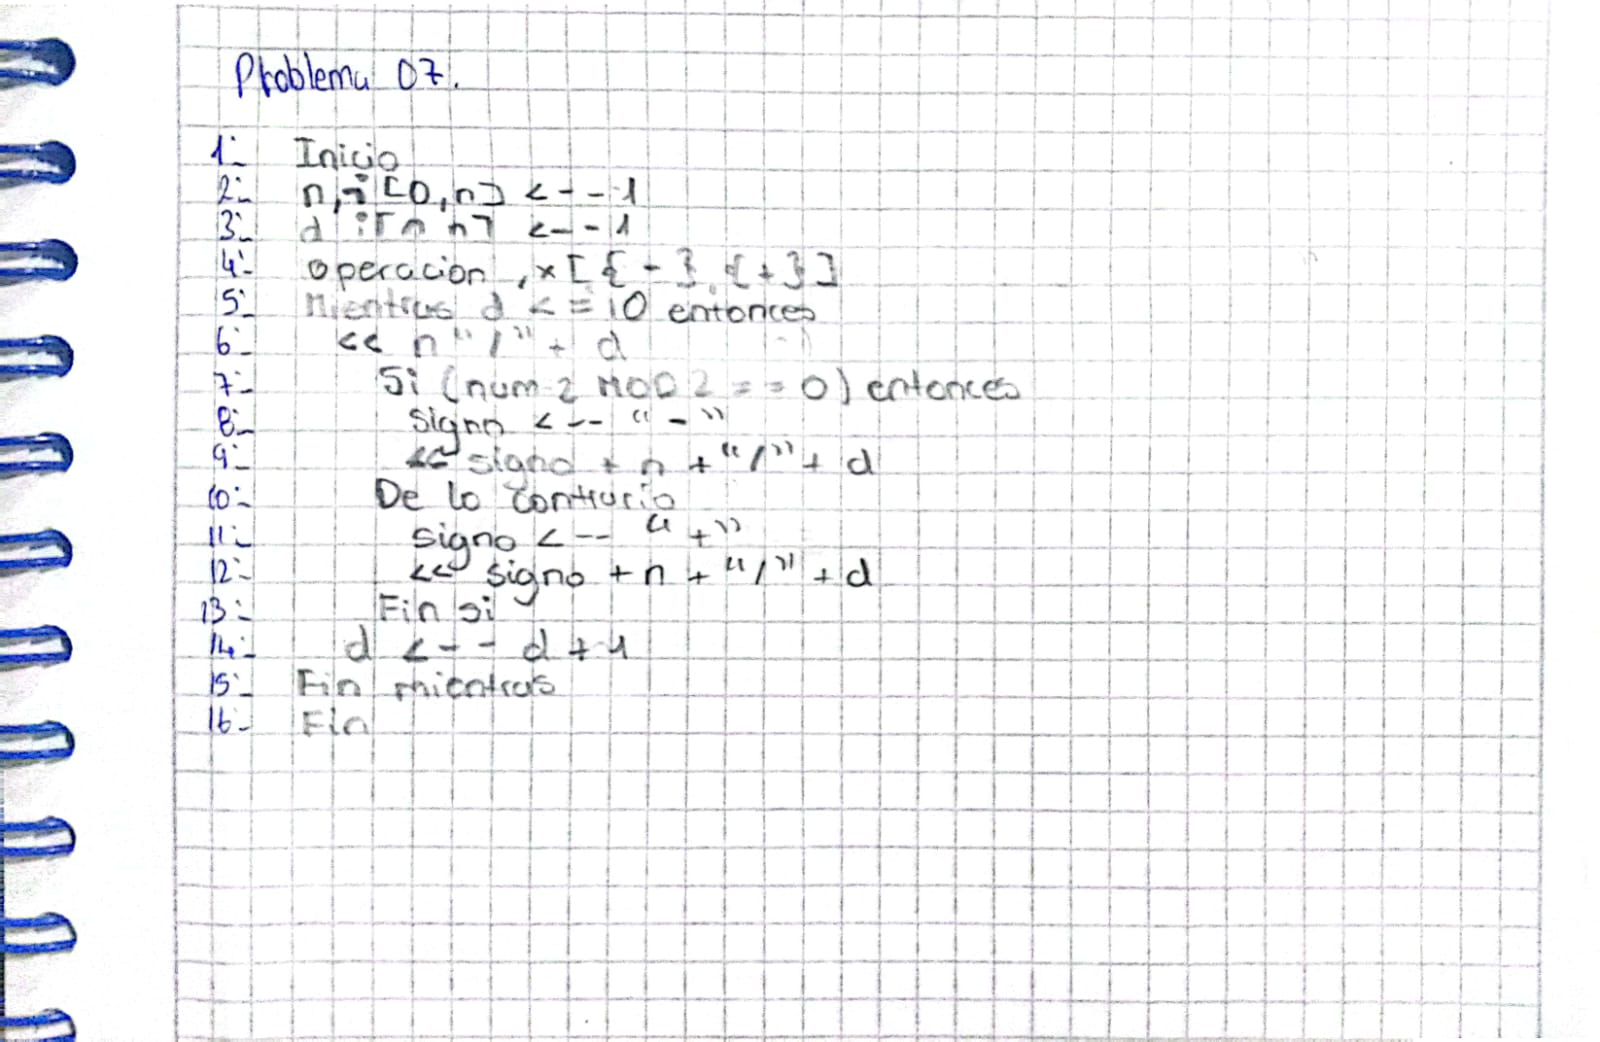 Problema 07.
1:- Inicio
2:- n, i [0,n] <-- 1
3:- d i[ n n] <-- 1
4:- operacion , x [ { - } , { + } ]
5:- Mientras d <= 10 entonces
6:- << n "/" + d
7:- Si (num 2 MOD 2 == 0) entonces
8:- signo <-- "-"
9:- << signo + n + "/" + d
10:- De lo contrario
11:- signo <-- "+"
12:- << signo + n + "/" + d
13:- Fin si
14:- d <-- d + 1
15:- Fin mientras
16:- Fin